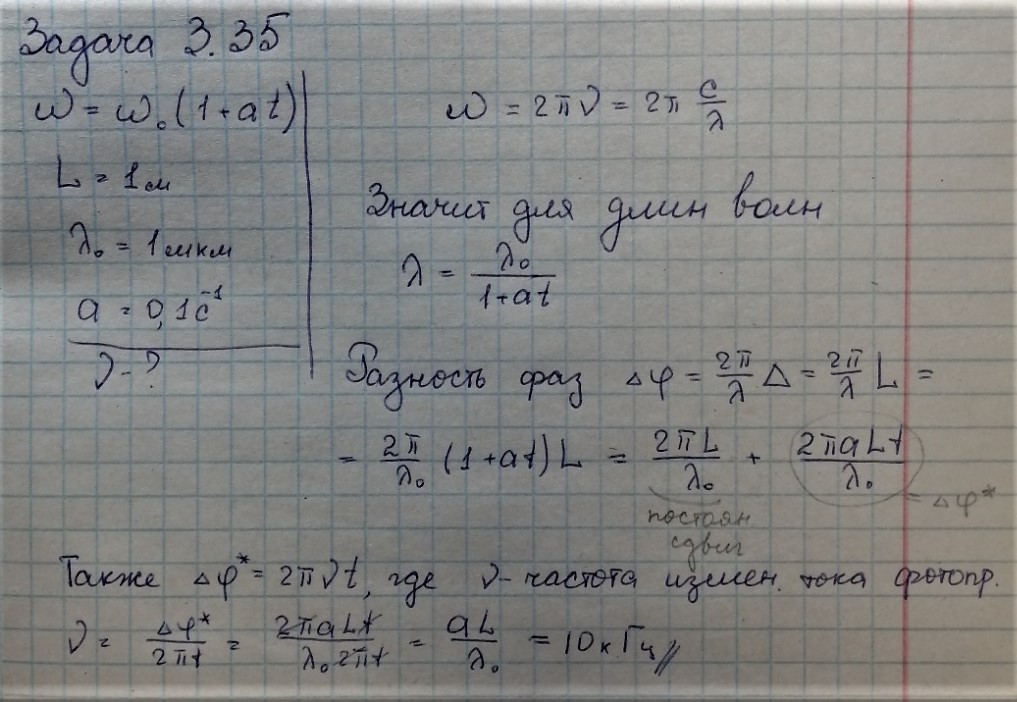 Задача 3.35
ω = ω₀ (1+at)
L = 1м
λ₀ = 1мкм
a = 0,1с⁻¹
ν - ?
ω = 2πν = 2π c/λ
Значит для длин волн
λ = λ₀/(1+at)
Разность фаз Δφ = 2π/λ Δ = 2π/λ L =
= 2π/λ₀ (1+at) L = 2πL/λ₀ + 2πaLt/λ₀ = Δφ*
постоян
сдвиг
Также Δφ* = 2πνt, где ν - частота измен. тока фотопр.
ν = Δφ*/2πt = 2πaLt/λ₀2πt = aL/λ₀ = 10кГц //